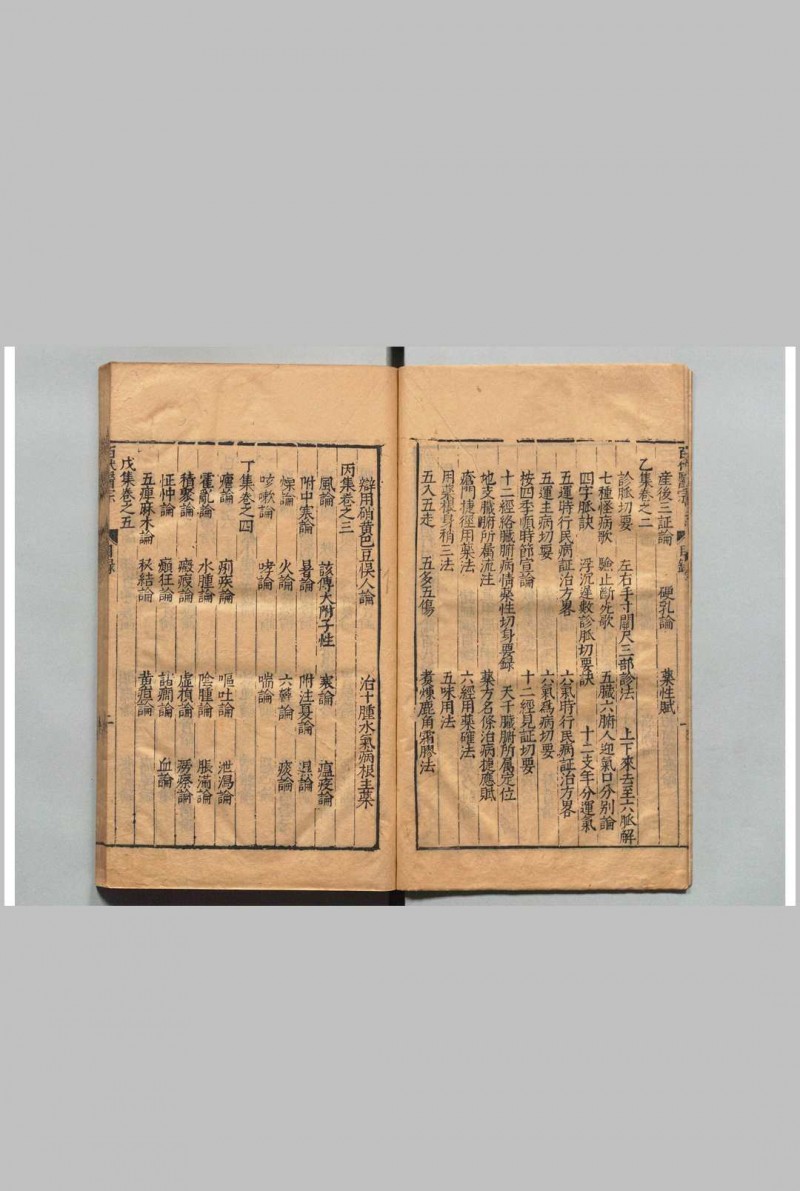 産後三証論 硬乳論 藥性賦
乙集卷之二
診脉切要 左右手寸關尺三部診法 上下來去至六脉解
七種怪病歌 驗止斷死歌 五臟六腑人迎氣口分别論
四字脉訣 浮沉遲數診脉切要訣 十二支年分運氣
五運時行民病証治方畧 六氣時行民病証治方畧
五運主病切要 六氣爲病切要
按四季順時節宣論 十二經見証切要
十二經絡臟腑病情藥性切身要録 天干臟腑所属定位
地支臟腑所属流注 藥方名條治病捷應賦
瘡門捷徑用藥法 六經用藥確法
用藥根身稍三法 五味用法
五入五走 五多五傷 煮煉鹿角霜膠法
辯用硝黄巴豆悮人論 治十腫水氣病根主葉
丙集卷之三
風論 該傳大附子性 寒論 瘟疫論
附中寒論 暑論 附注夏論 濕論
燥論 火論 六鬱論 痰論
咳嗽論 哮論 喘論
丁集卷之四
瘧論 痢疾論 嘔吐論 泄瀉論
霍亂論 水腫論 陰腫論 脹滿論
積聚論 癥瘕論 虚損論 癆瘵論
怔忡論 癲狂論 詀癇論 血論
五痺麻木論 秘結論 黄疸論
戊集卷之五
目録